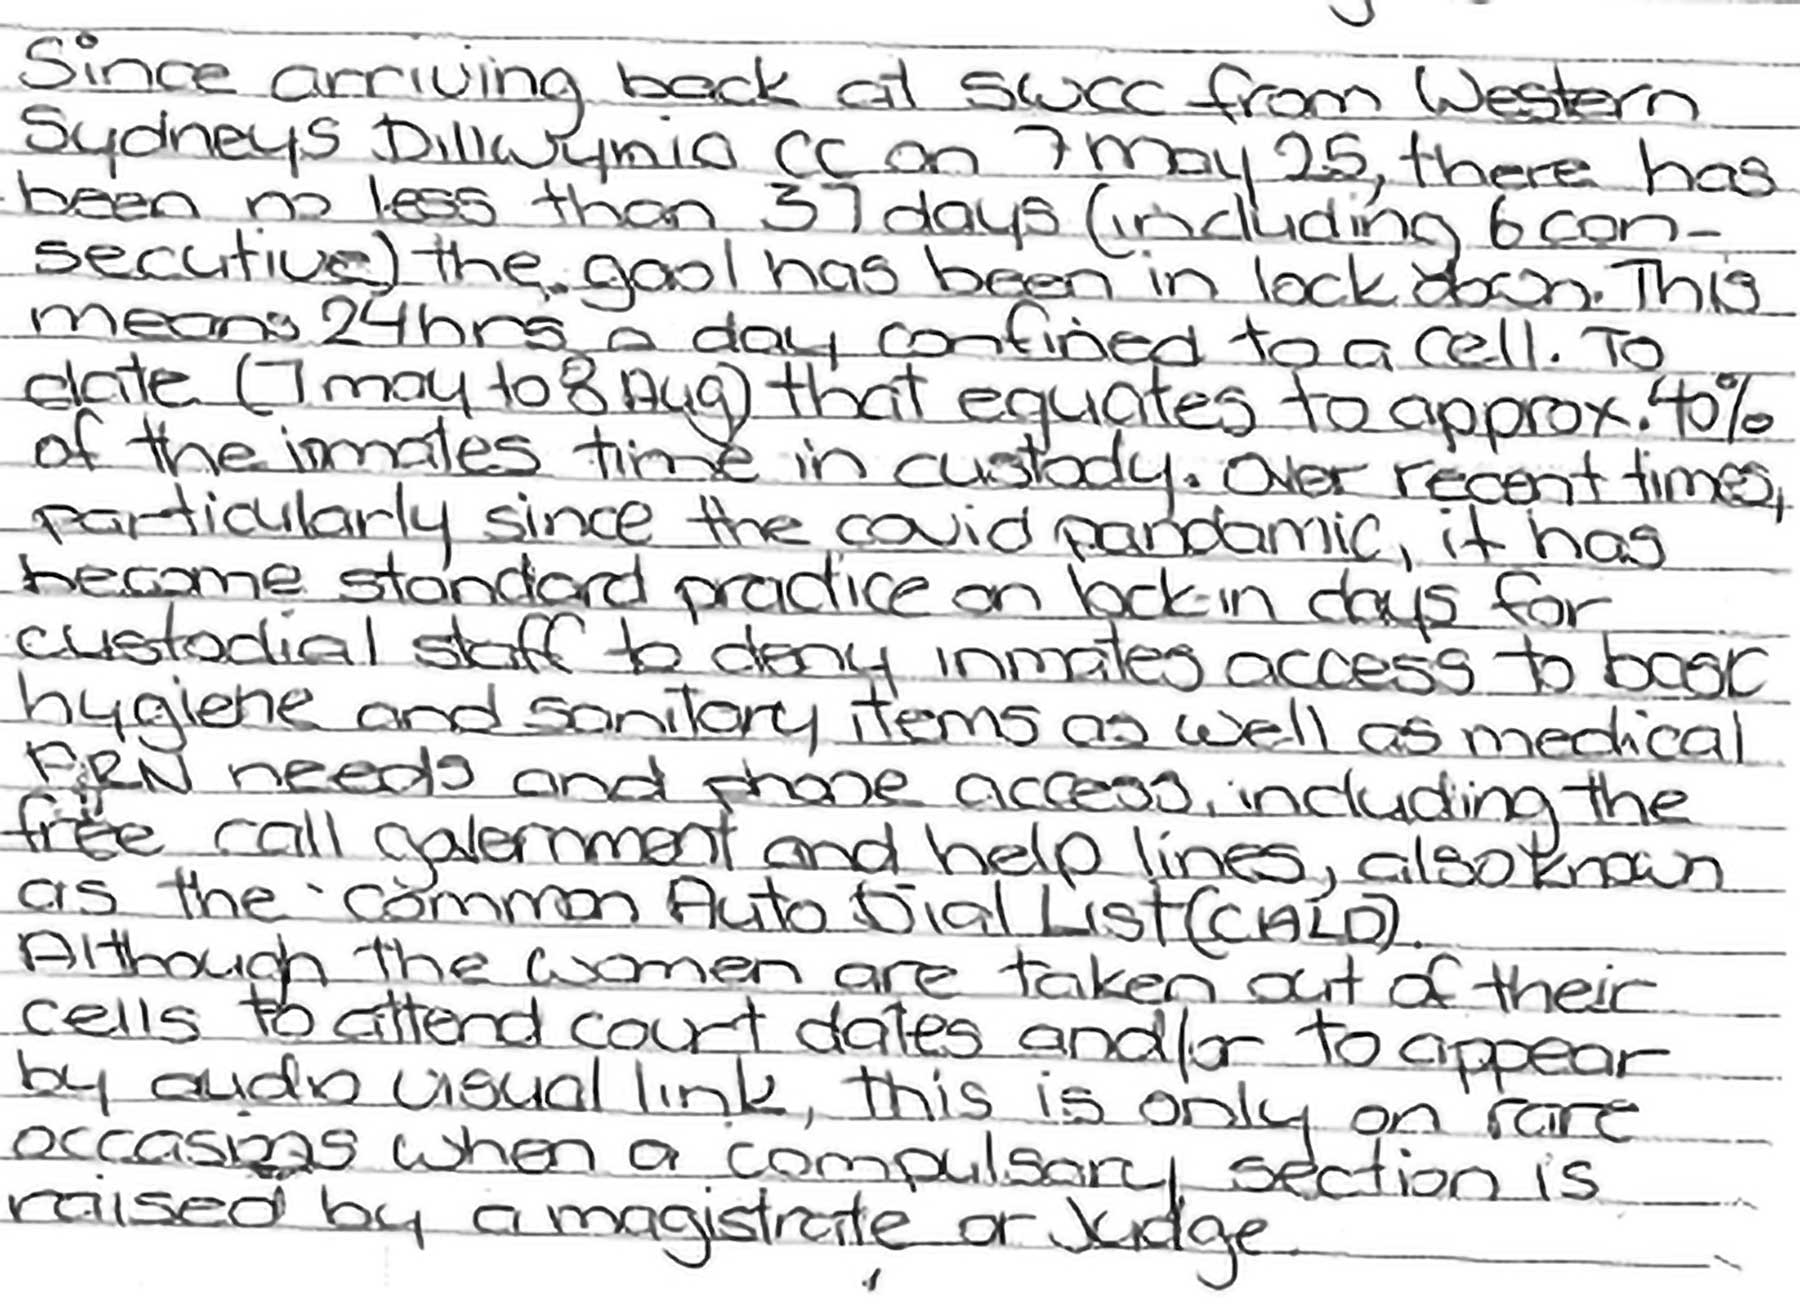 Since arriving back at SWCC from Western
Sydneys Dillwynia CC on 7 May 25, there has
been no less than 37 days (including 6 con-
secutive) the gaol has been in lock down. This
means 24hrs a day confined to a cell. To
date (7 may to 8 Aug) that equates to approx. 40%
of the inmates time in custody. Over recent times,
particularly since the covid pandamic, it has
become standard practice on lock-in days for
custodial staff to deny inmates access to basic
hygiene and sanitary items as well as medical
PRN needs and phone access, including the
free call government and help lines, also known
as the common Auto Dial List (CALD).
Although the women are taken out of their
cells to attend court dates and/or to appear
by audio visual link, this is only on rare
occasions when a compulsary section is
raised by a magistrate or Judge.